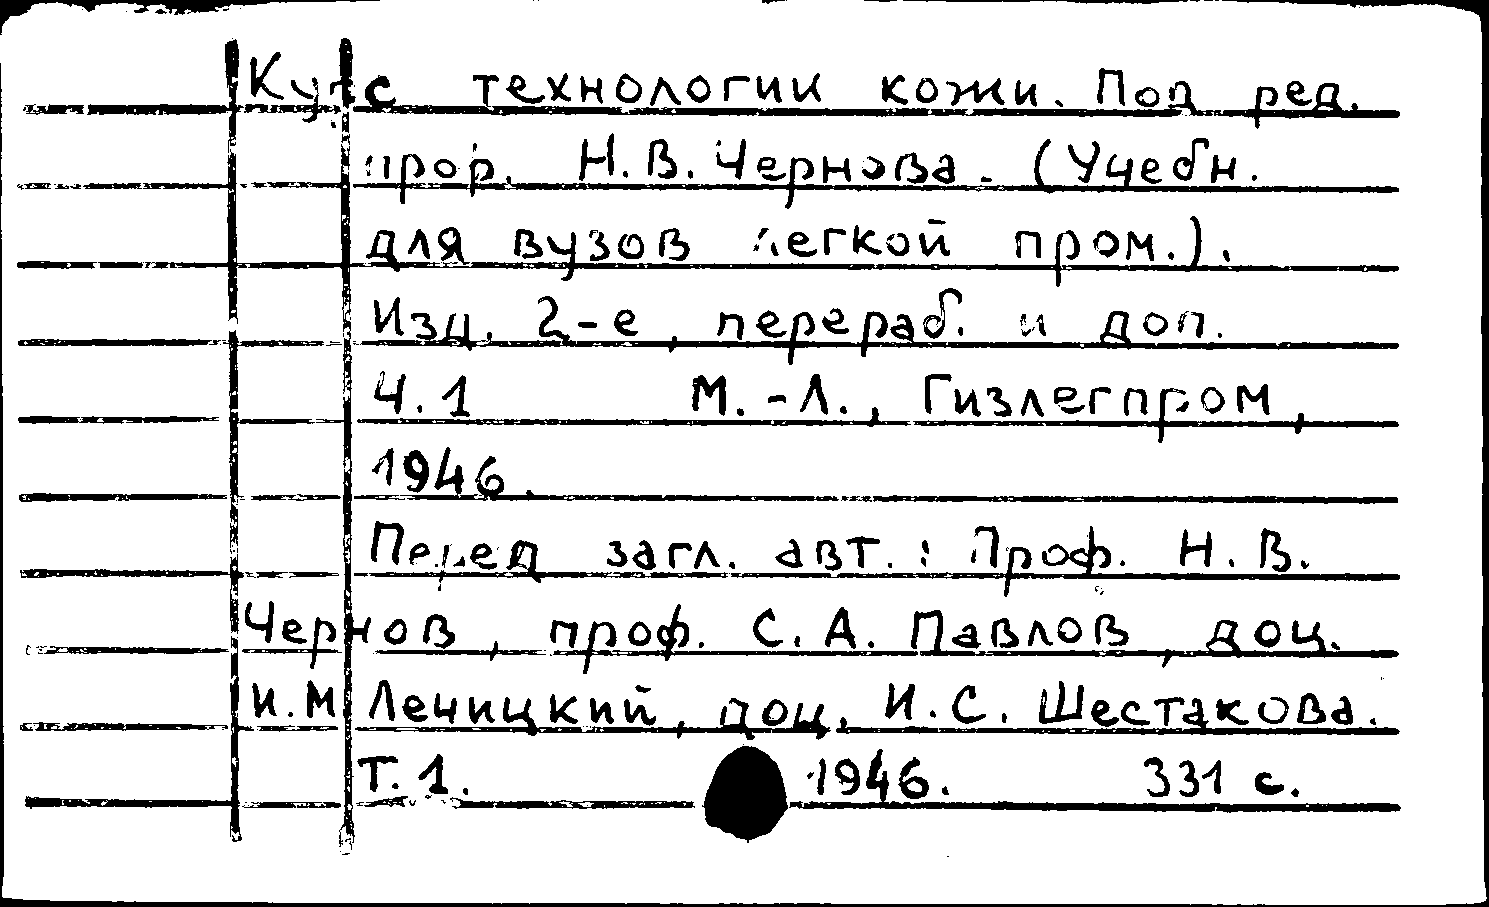 Курс технологии кожи. Под ред.
прор. Н.В. Чернова. (Учебн.
для вузов легкой пром.).
Изд. 2-е, перераб. и доп.
Ч.1 М.-Л., Гизлегпром,
1946.
Перед загл. авт.: Проф. Н.В.
Чернов, проф. С.А. Павлов, доц.
И.М Леницкий, доц. И.С. Шестакова.
Т.1. 1946. 331 с.